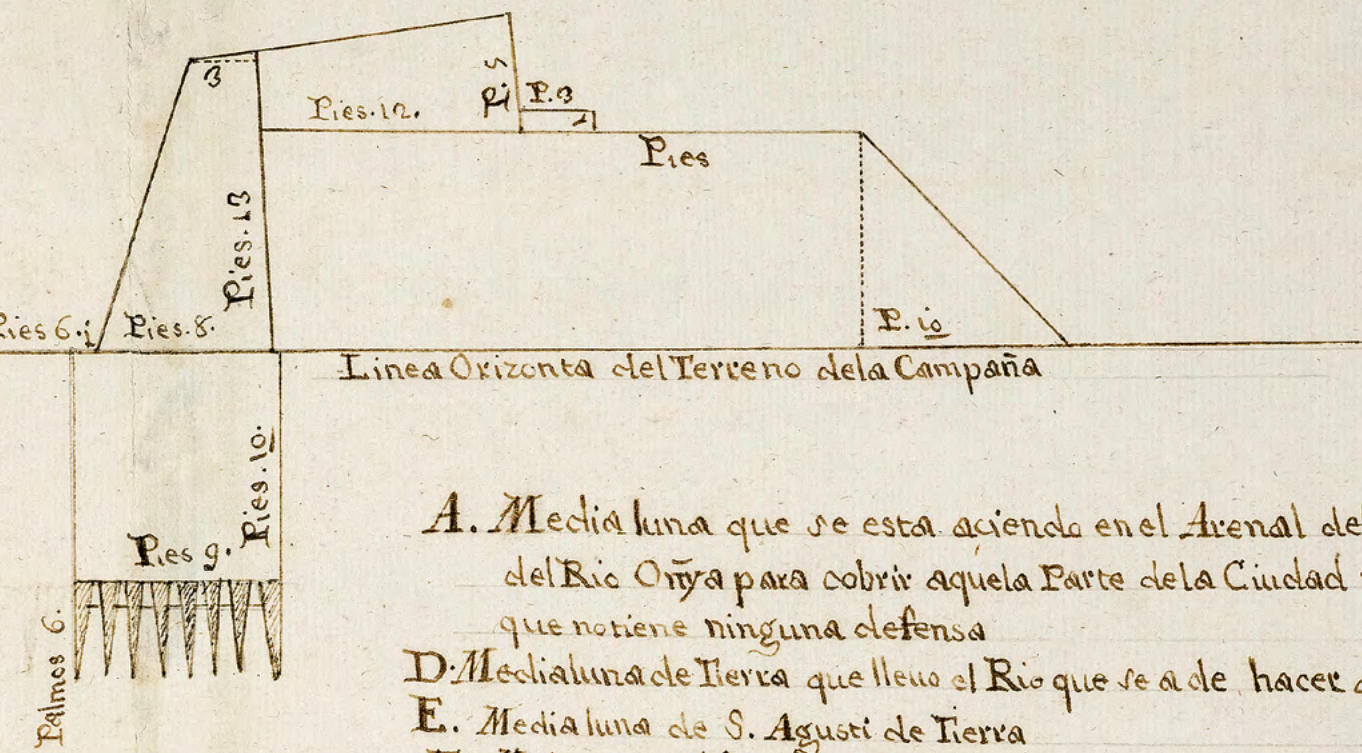 3
Pies.12.
Pi. 5
P.3
1
Pies
Pies.13
Pies 6.
Pies.8.
P. 10
Linea Orizonta del Terreno dela Campaña
Pies.10.
Pies 9.
Palmos 6.
A. Media luna que se esta açiendo en el Arenal de
del Rio Oñya para cobrir aquela Parte dela Ciudad
que no tiene ninguna defensa
D. Media luna de Tierra que lleuo el Rio que se a de hacer
E. Media luna de S. Agusti de Tierra